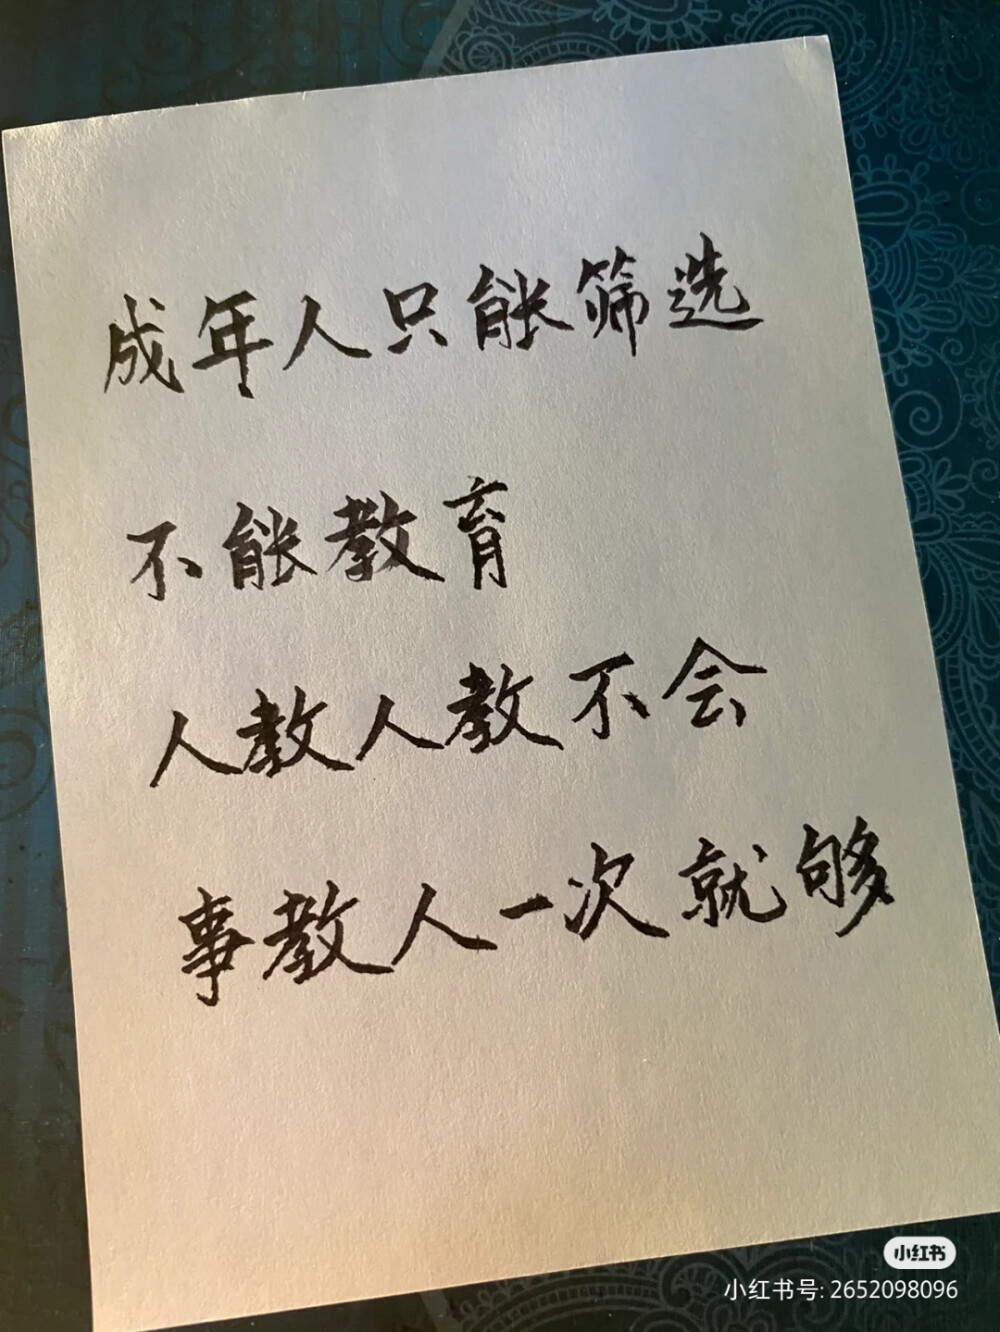 成年人只能筛选
不能教育
人教人教不会
事教人一次就够
小红书
小红书号: 2652098096